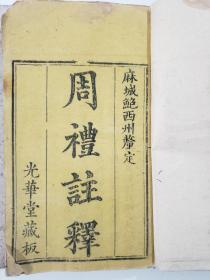 麻城鮑西州釐定
周禮註釋
光華堂藏板